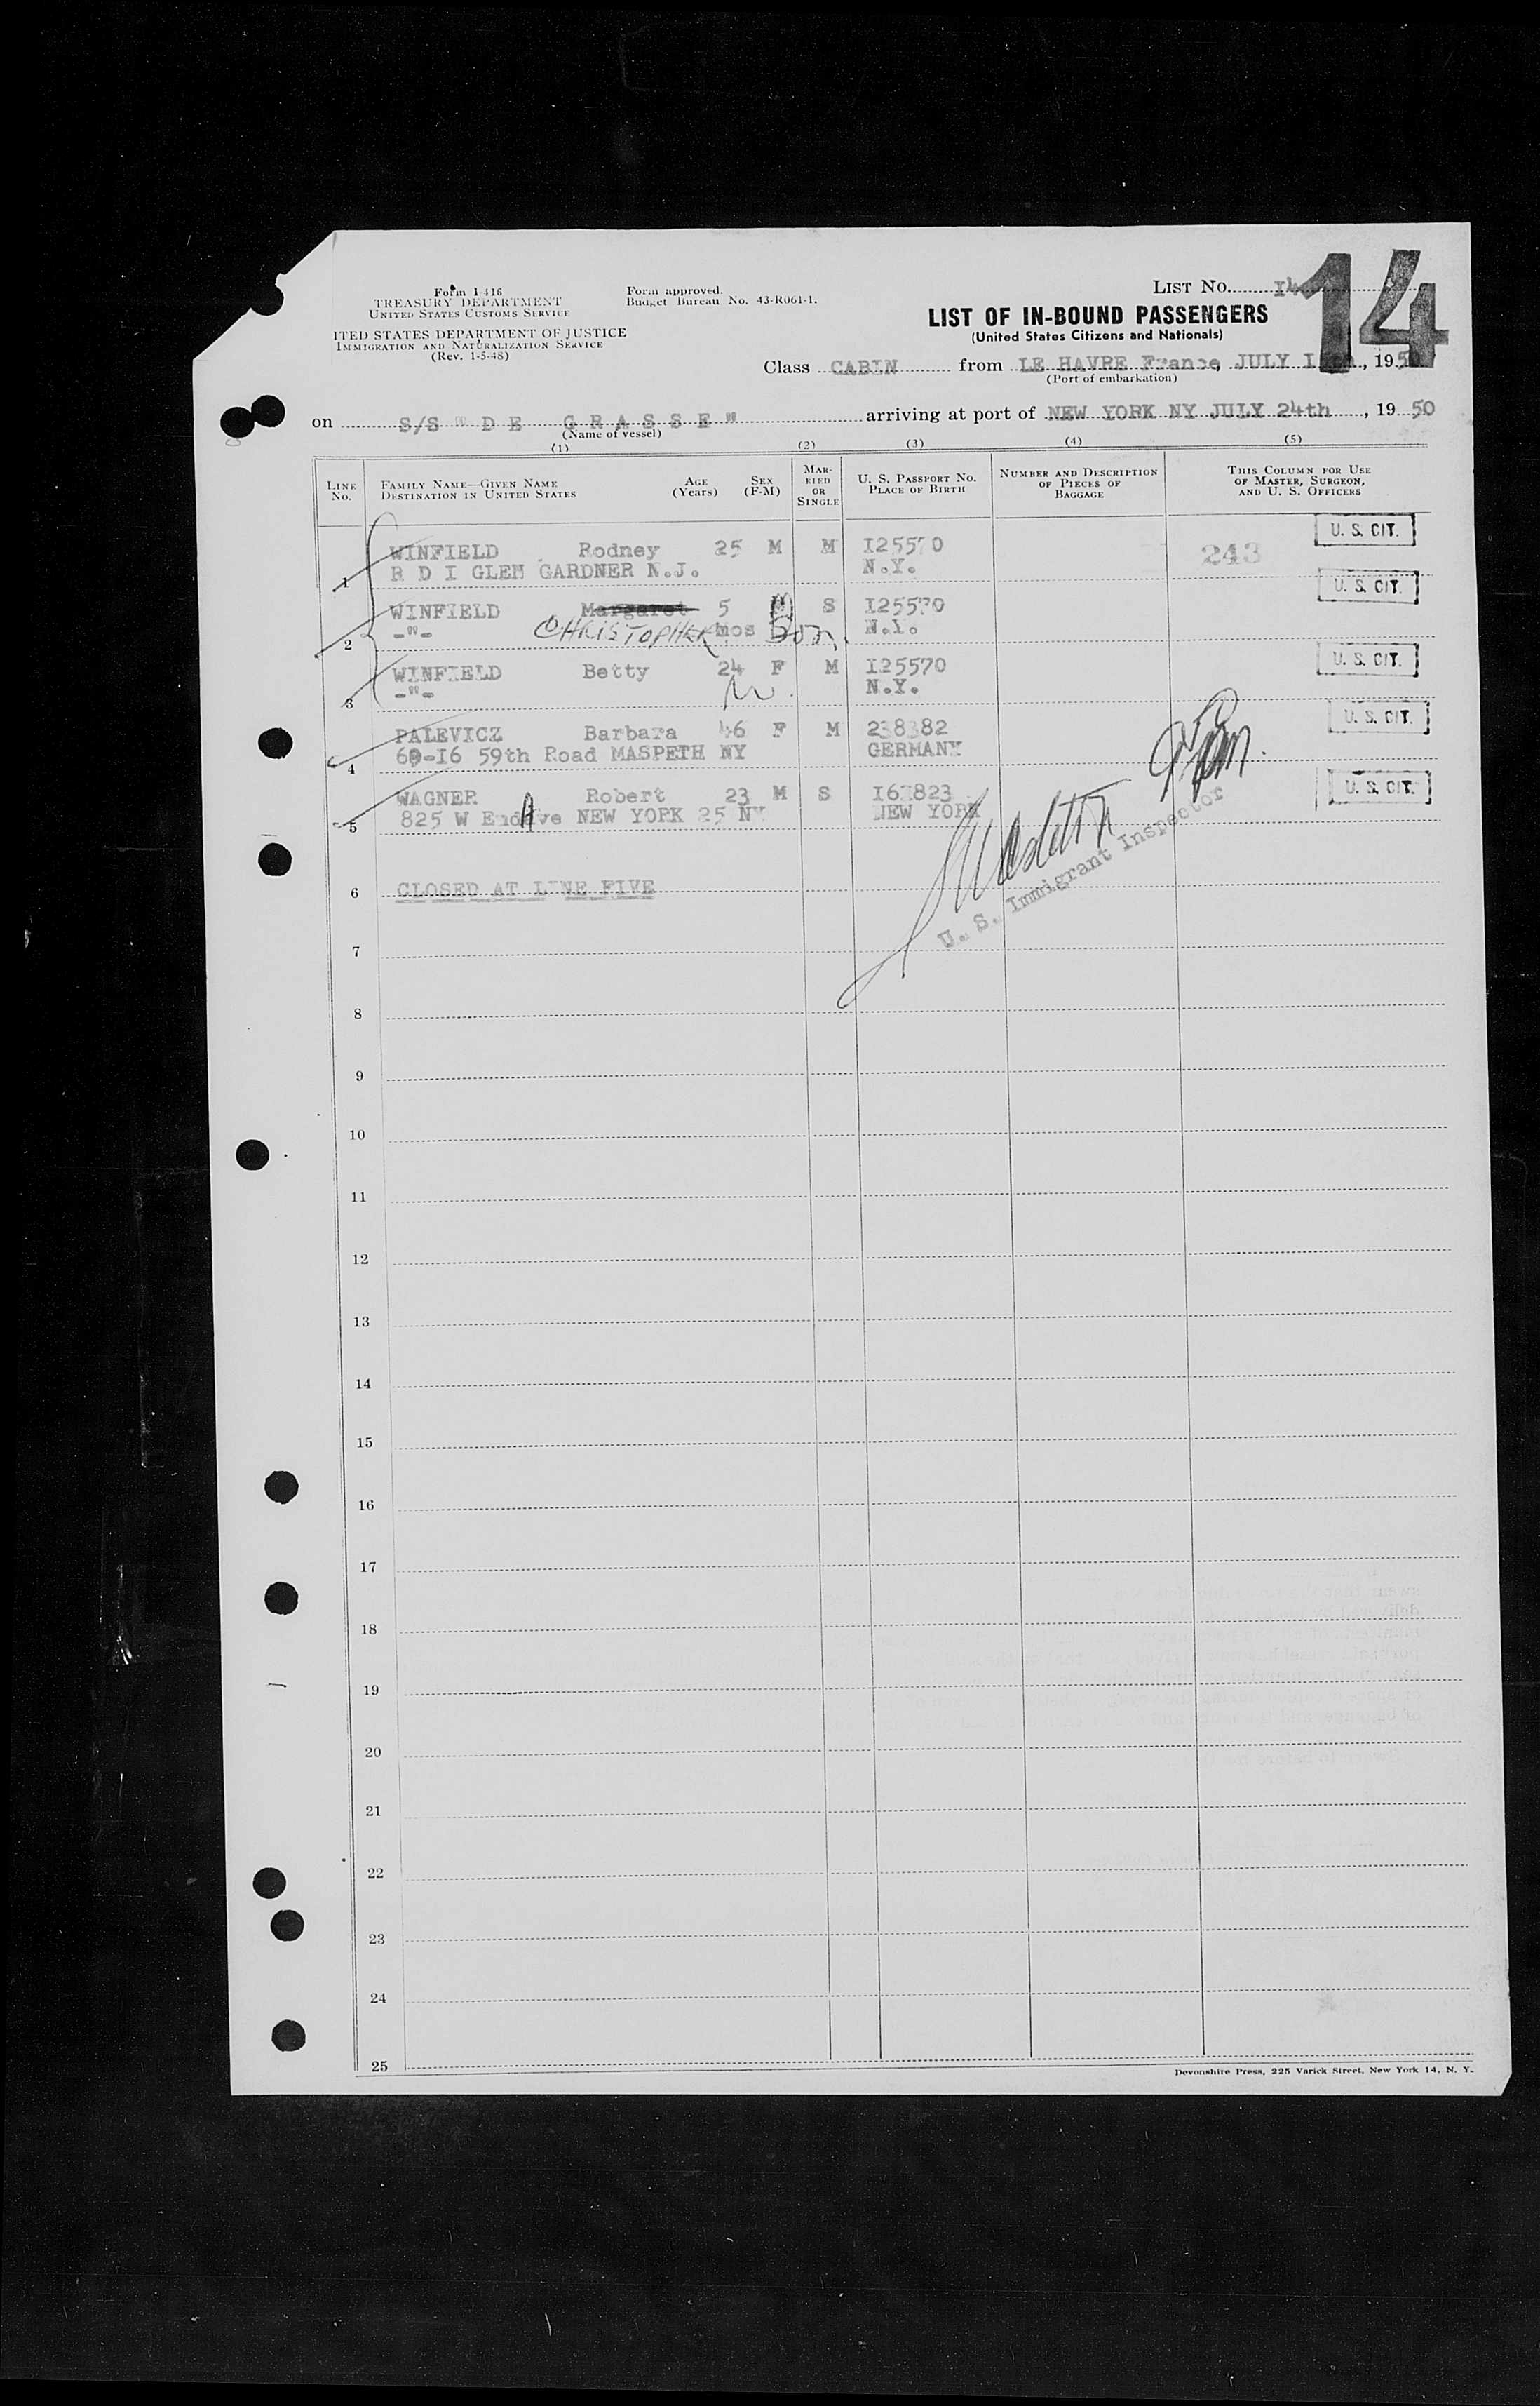 Form I 416
TREASURY DEPARTMENT
UNITED STATES CUSTOMS SERVICE
ITED STATES DEPARTMENT OF JUSTICE
IMMIGRATION AND NATURALIZATION SERVICE
(Rev. 1-5-48)
Form approved.
Budget Bureau No. 43-R061-1.
LIST No. 14
14
LIST OF IN-BOUND PASSENGERS
(United States Citizens and Nationals)
Class CABIN from LE HAVRE France, JULY , 1950
(Port of embarkation)
on S/S " D E G R A S S E " arriving at port of NEW YORK NY JULY 24th , 19 50
(Name of vessel)
(1) (2) (3) (4) (5)
LINE No. FAMILY NAME—GIVEN NAME DESTINATION IN UNITED STATES AGE (Years) SEX (F-M) MARRIED OR SINGLE U. S. PASSPORT No. PLACE OF BIRTH NUMBER AND DESCRIPTION OF PIECES OF BAGGAGE THIS COLUMN FOR USE OF MASTER, SURGEON, AND U. S. OFFICERS
WINFIELD Rodney 25 M M I25570 243 U. S. CIT.
1 R D I GLEM GARDNER N.J. N.Y.
WINFIELD Margaret 5 M S I25570 U. S. CIT.
2 -"- CHRISTOPHER mos Son. N.Y.
WINFIELD Betty 24 F M I25570 U. S. CIT.
3 -"- N.Y.
PALEVICZ Barbara 46 F M 238382 U. S. CIT.
4 60-I6 59th Road MASPETH NY GERMANY
WAGNER Robert 23 M S I67823 U. S. CIT.
5 825 W End Ave NEW YORK 25 NY NEW YORK
U. S. Immigrant Inspector
6 CLOSED AT LINE FIVE
7
8
9
10
11
12
13
14
15
16
17
18
19
20
21
22
23
24
25
Devonshire Press, 225 Varick Street, New York 14, N. Y.